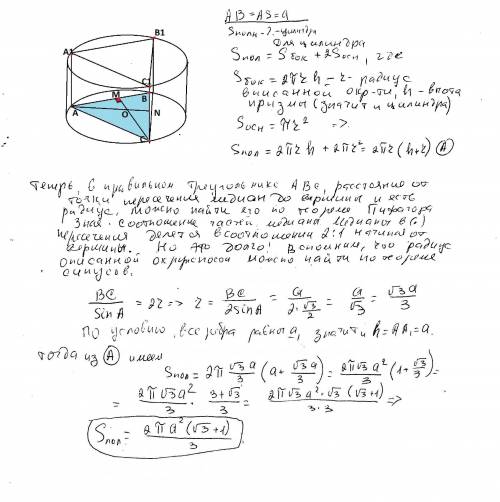 A1
B1
C1
M
B
A
O
N
C
AB=AS=a
Sполн-?-цилиндра
Для цилиндра
Sпол = Sбок + 2Sосн, где
Sбок = 2πr h - r- радиус
вписанной окр-ти, h - высота
призмы (значит и цилиндра)
Sосн = πr² =>
Sпол = 2πrh + 2πr² = 2πr(h+r) (A)
Теперь, в правильном треугольнике ABC, расстояние от
точки пересечения медиан до вершины и есть
радиус, можно найти его по теореме Пифагора
Зная соотношение частей медианы (медианы в (·)
пересечения делятся в соотношении 2:1 начиная от
вершины. Но это долго! Вспомним, что радиус
описанной окружности можно найти по теореме
синусов:
BC/SinA = 2r => r = BC/2sinA = a/(2·√3/2) = a/√3 = √3a/3
По условию все ребра равны a, значит и h=AA₁=a.
тогда из (A) имеем
Sпол = 2π √3a/3 (a + √3a/3) = 2π√3a²/3 (1+√3/3) =
= 2π√3a²/3 · (3+√3)/3 = 2π√3a²·√3(√3+1)/(3·3) =>
Sпол = 2πa²(√3+1)/3